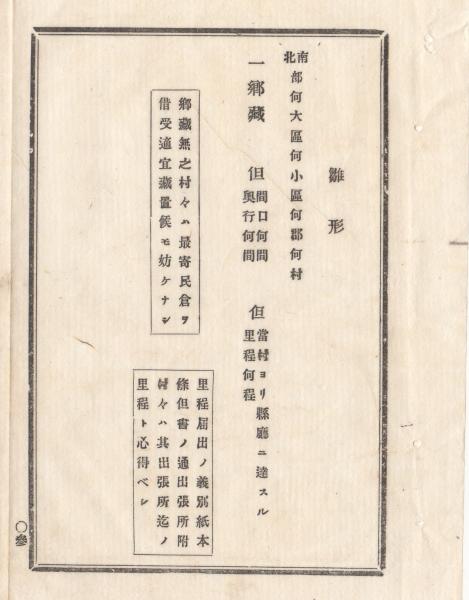 雛形
南北部何大區何小區何郡何村
一鄉藏 但間口何間奧行何間 但當村ヨリ縣廳ニ達スル里程何程
鄉藏無之村々ハ最寄民倉ヲ
借受適宜藏置候モ妨ケナシ
里程屆出ノ義別紙本
條但書ノ通出張所附
村々ハ其出張所迄ノ
里程ト心得ベシ
〇參